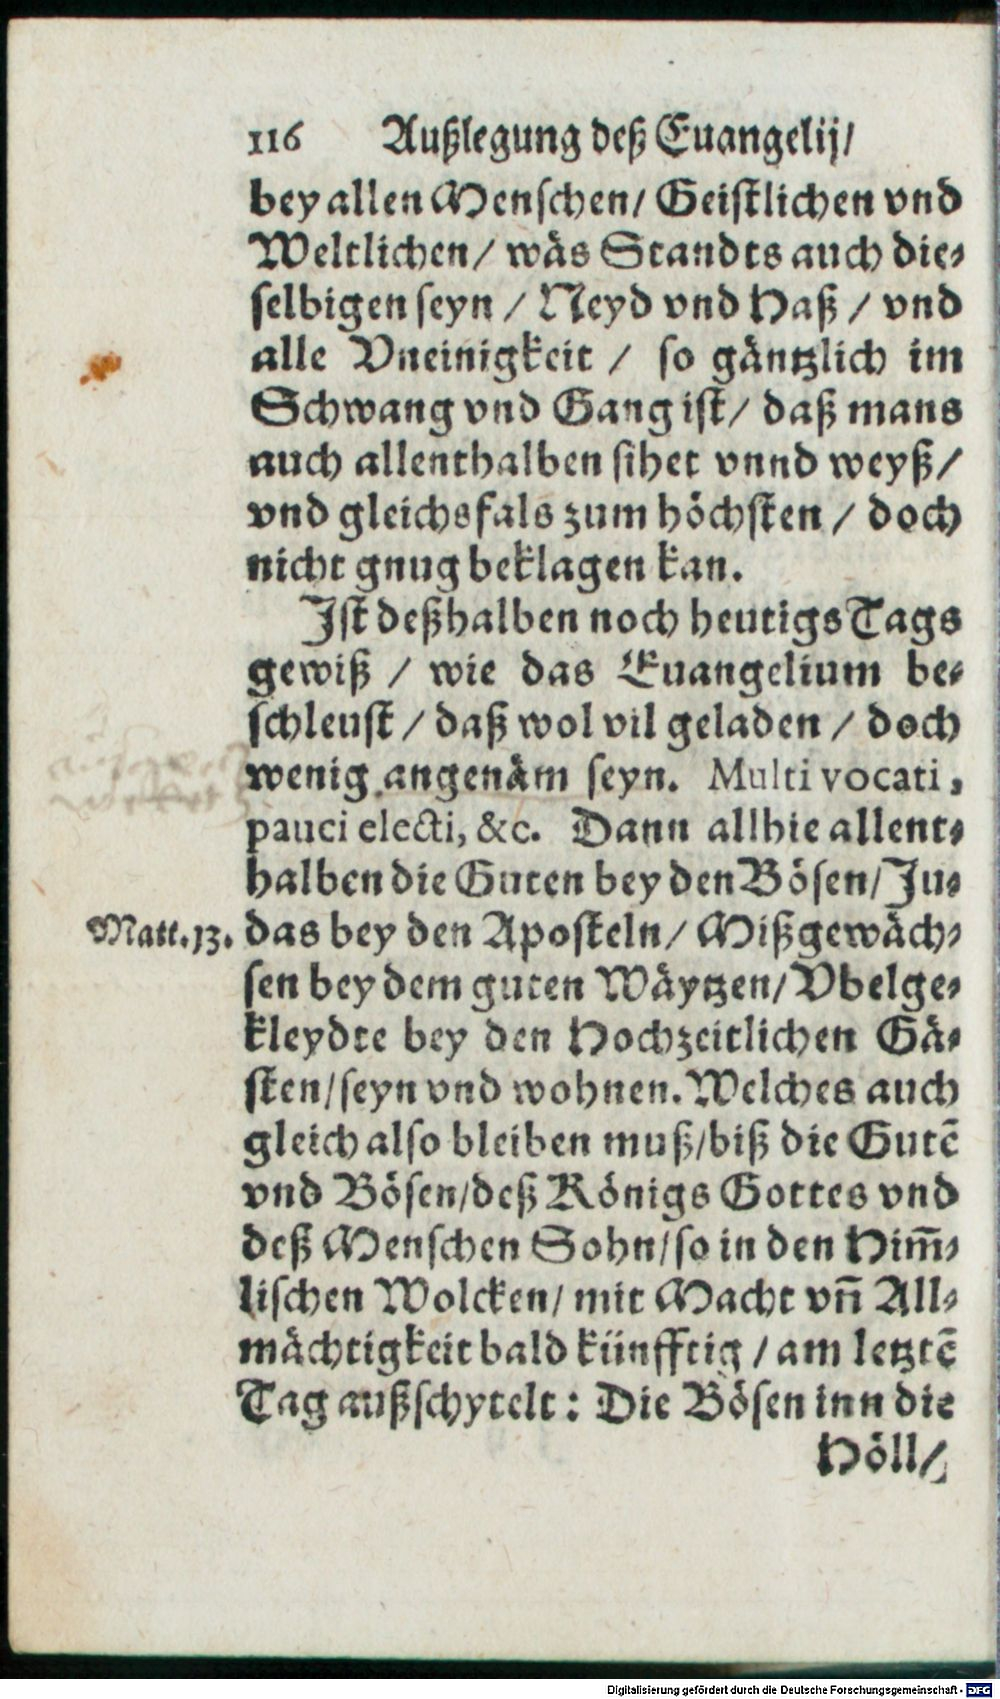 116 Außlegung deß Euangelij/
bey allen Menschen/ Geistlichen vnd
Weltlichen/ wäs Standts auch die⸗
selbigen seyn / Neyd vnd Haß / vnd
alle Vneinigkeit / so gäntzlich im
Schwang vnd Gang ist/ daß mans
auch allenthalben sihet vnnd weyß/
vnd gleichsfals zum höchsten / doch
nicht gnug beklagen kan.
Ist deßhalben noch heutigs Tags
gewiß / wie das Euangelium be⸗
schleust / daß wol vil geladen / doch
wenig angenäm seyn. Multi vocati,
pauci electi, &c. Dann allhie allent⸗
halben die Guten bey den Bösen/ Ju⸗
Matt.13. das bey den Aposteln/ Mißgewäch⸗
sen bey dem guten Wäytzen/ Vbelge⸗
kleydte bey den Hochzeitlichen Gä⸗
sten/ seyn vnd wohnen. Welches auch
gleich also bleiben muß/ biß die Gutẽ
vnd Bösen/ deß Königs Gottes vnd
deß Menschen Sohn/ so in den Him̃⸗
lischen Wolcken/ mit Macht vñ All⸗
mächtigkeit bald künfftig / am letztẽ
Tag außschytelt: Die Bösen inn die
Höll/
Digitalisierung gefördert durch die Deutsche Forschungsgemeinschaft - DFG